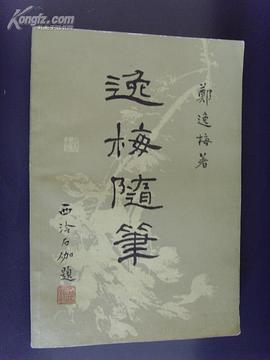 kongfz.com
鄭逸梅著
逸梅隨筆
西泠石伽題